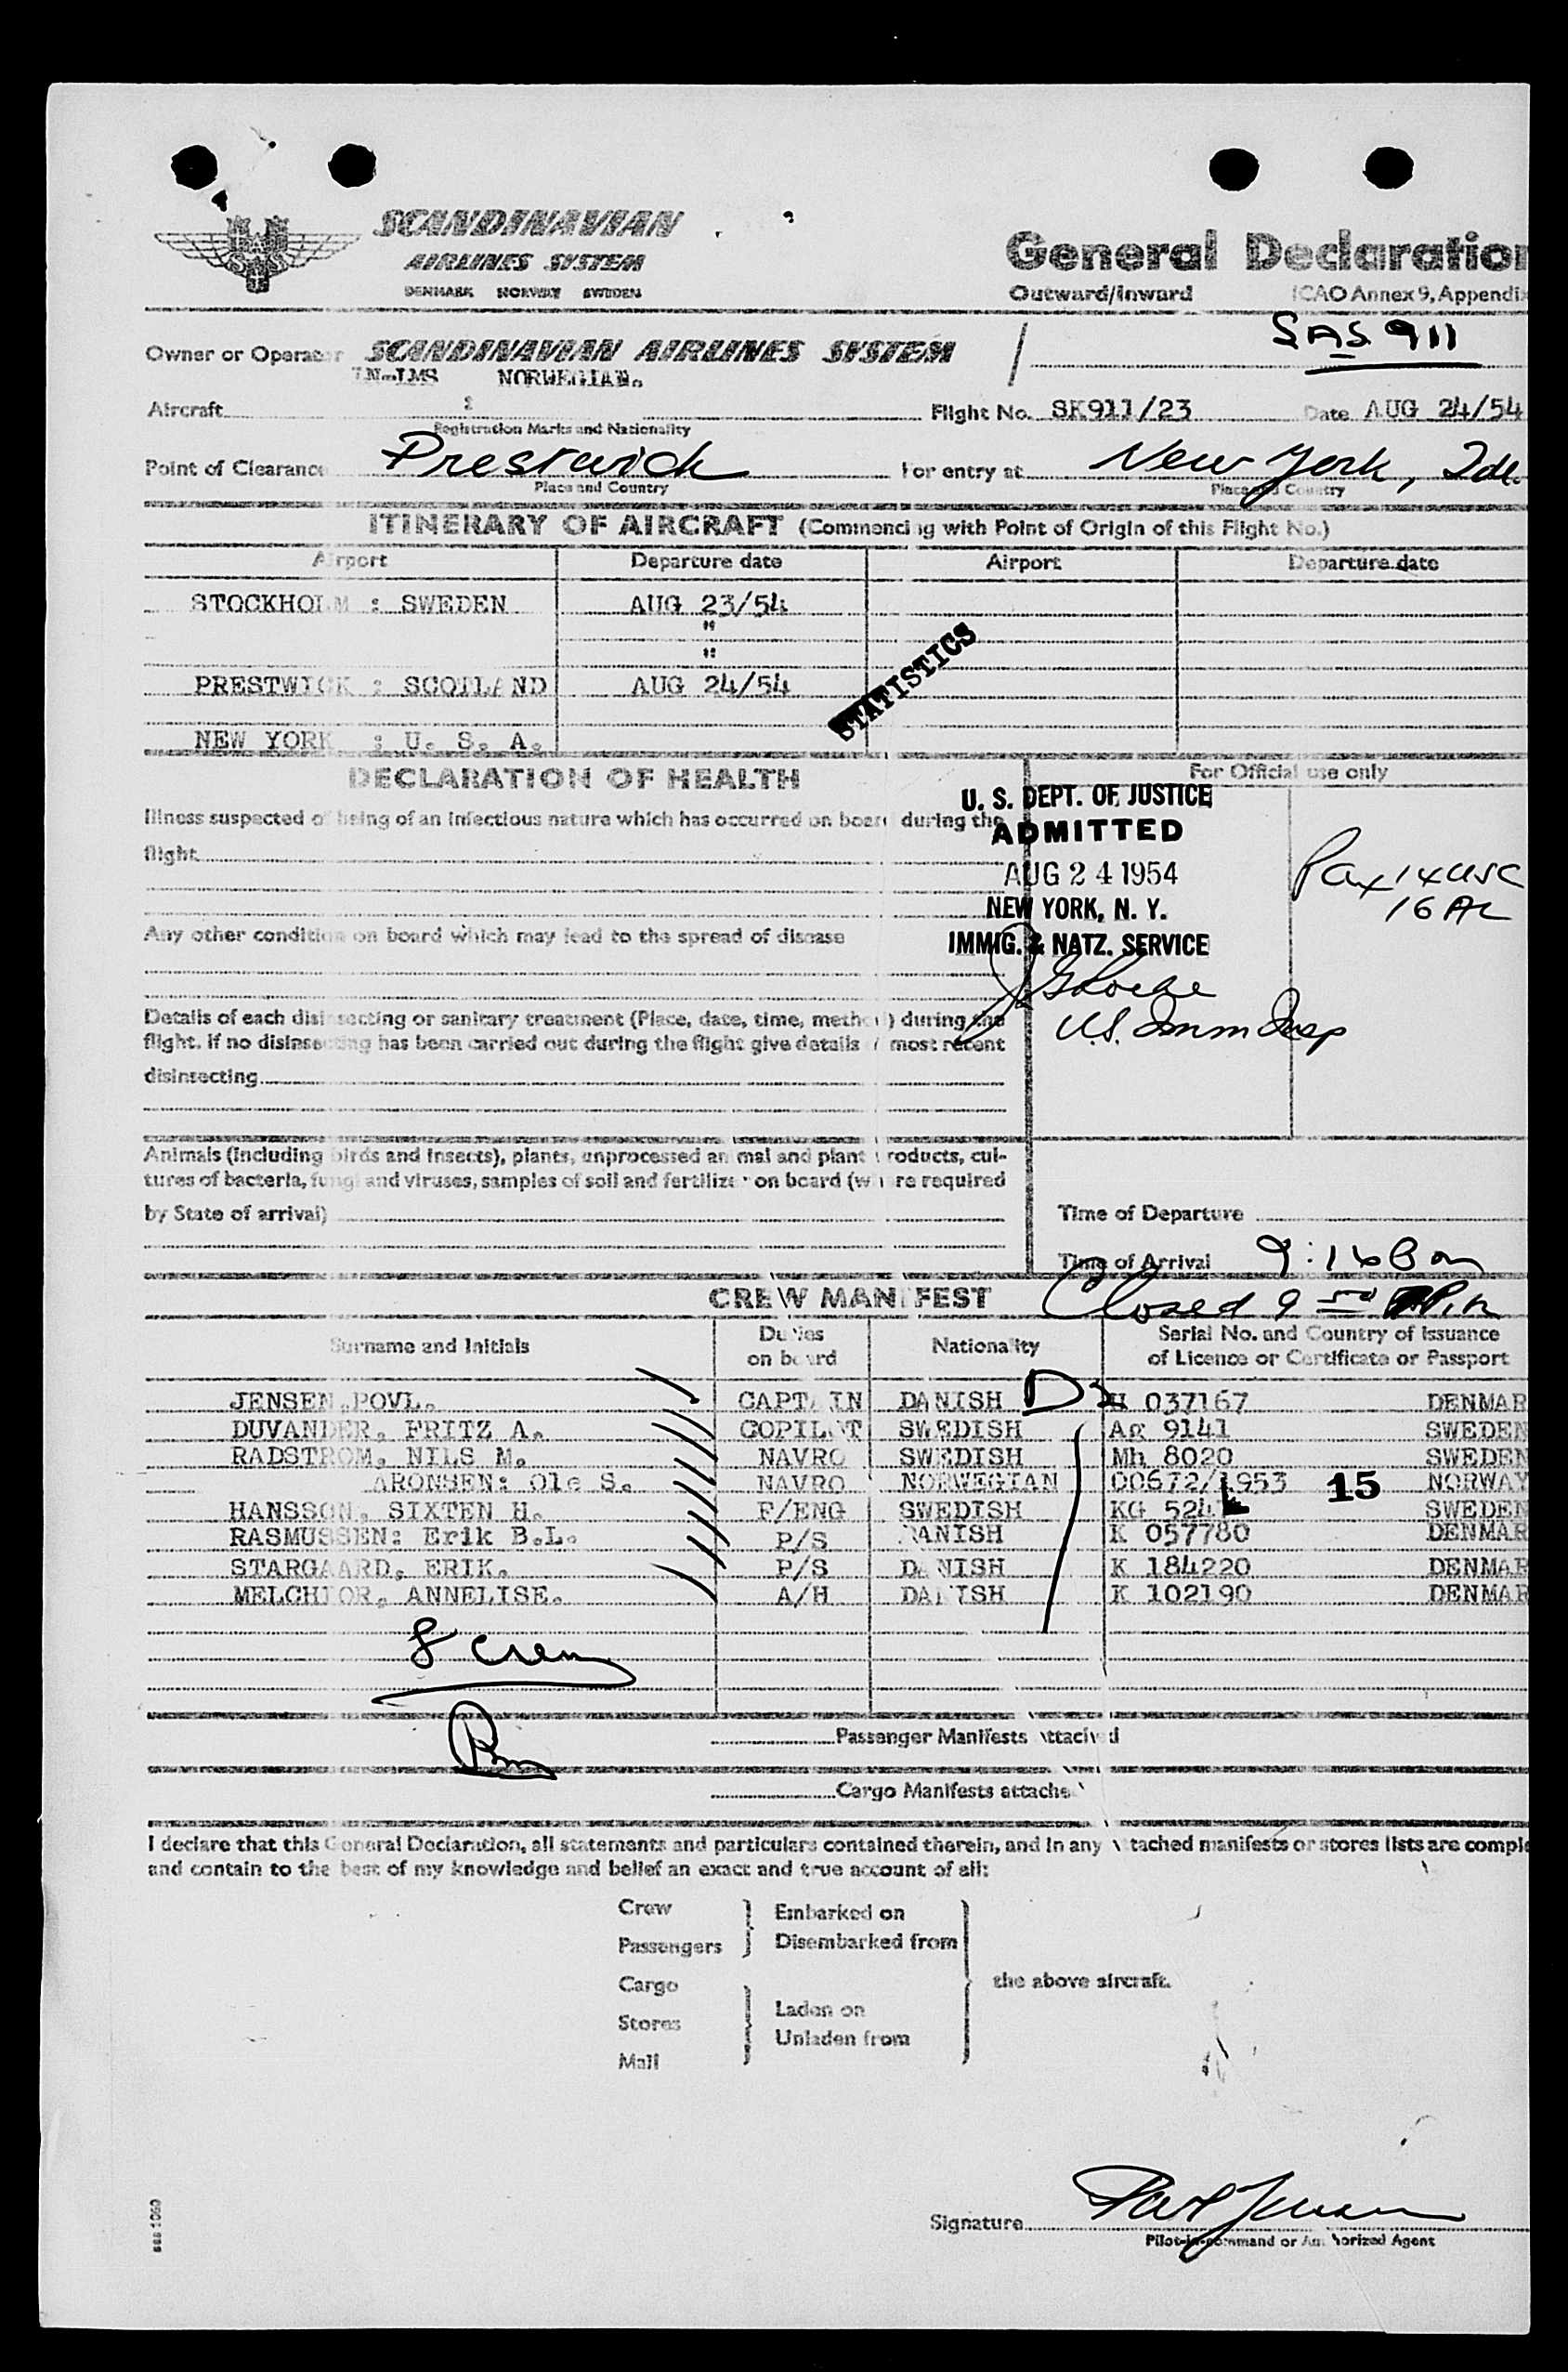 SCANDINAVIAN
AIRLINES SYSTEM
DENMARK NORWAY SWEDEN
General Declaration
Outward/Inward ICAO Annex 9, Appendix
SAS 911
Owner or Operator SCANDINAVIAN AIRLINES SYSTEM
LN-LMS NORWEGIAN.
Aircraft : Flight No. SK911/23 Date AUG 24/54
Registration Marks and Nationality
Point of Clearance Prestwick For entry at New York, Idl.
Place and Country Place and Country
ITINERARY OF AIRCRAFT (Commencing with Point of Origin of this Flight No.)
Airport Departure date Airport Departure date
STOCKHOLM : SWEDEN AUG 23/54
"
"
PRESTWICK : SCOTLAND AUG 24/54
STATISTICS
NEW YORK : U. S. A.
DECLARATION OF HEALTH
For Official use only
Illness suspected of being of an infectious nature which has occurred on board during the
flight
Any other condition on board which may lead to the spread of disease
Details of each disinsecting or sanitary treatment (Place, date, time, method) during the
flight. If no disinsecting has been carried out during the flight give details of most recent
disinsecting
U. S. DEPT. OF JUSTICE
ADMITTED
AUG 24 1954
NEW YORK, N. Y.
IMMIG. & NATZ. SERVICE
U.S. Imm Insp
Pax 14 USC
16 AL
Animals (including birds and insects), plants, unprocessed animal and plant products, cul-
tures of bacteria, fungi and viruses, samples of soil and fertilizer on board (where required
by State of arrival)
Time of Departure
Time of Arrival 9:16
Closed 9
CREW MANIFEST
Surname and Initials Duties on board Nationality Serial No. and Country of Issuance of Licence or Certificate or Passport
JENSEN, POVL. CAPTAIN DANISH D H 037167 DENMAR
DUVANDER, FRITZ A. COPILOT SWEDISH Ag 9141 SWEDEN
RADSTROM, NILS M. NAVRO SWEDISH Mh 8020 SWEDEN
ARONSEN: Ole S. NAVRO NORWEGIAN 00672/1953 15 NORWAY
HANSSON, SIXTEN H. F/ENG SWEDISH KG 524 SWEDEN
RASMUSSEN: Erik B.L. P/S DANISH K 057780 DENMAR
STARGAARD, ERIK. P/S DANISH K 184220 DENMAR
MELCHIOR, ANNELISE. A/H DANISH K 102190 DENMAR
8 crew
Passenger Manifests attached
Cargo Manifests attached
I declare that this General Declaration, all statements and particulars contained therein, and in any attached manifests or stores lists are comple
and contain to the best of my knowledge and belief an exact and true account of all:
Crew
Passengers
Embarked on
Disembarked from
Cargo
Stores
Mail
Laden on
Unladen from
the above aircraft.
Signature Povl Jensen
Pilot-in-command or Authorized Agent
sas 1060